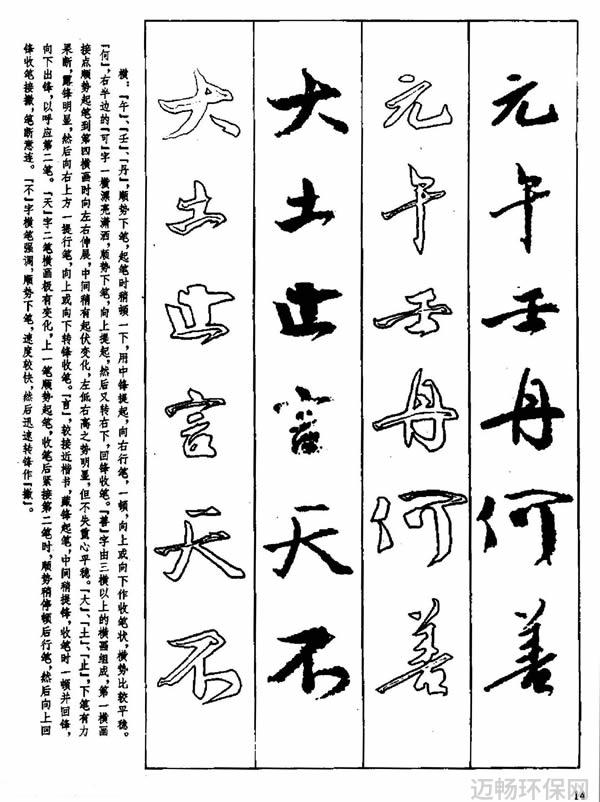 元午壬丹何善
元午壬丹何善
大土言天不
大土言天不
横：『午』、『壬』、『丹』，顺势下笔，起笔时稍顿一下，用中锋提起，向右行笔，一顿，向上或向下作收笔状，横势比较平稳。
『何』，右半边的『可』字一横漂亮潇洒，顺势下笔，向上提起，然后又转右下，回锋收笔。『善』字由三横以上的横画组成，第一横画
接点顺势起笔到第四横画时向左右伸展，中间稍有起伏变化，左低右高之势明显，但不失重心平稳。『大』、『土』、『止』，下笔有力
果断，露锋明显，然后向右上方一提行笔，向上或向下转锋收笔。『言』，较接近楷书，藏锋起笔，中间稍提锋，收笔时一顿并回锋，
向下出锋，以呼应第二笔。『天』字二笔横画极有变化，上一笔顺势起笔，收笔后紧接第二笔时，顺势稍停顿后行笔，然后向上回
锋收笔接撇，笔断意连。『不』字横笔强调，顺势下笔，速度较快，然后迅速转锋作『撇』。
14
迈畅环保网